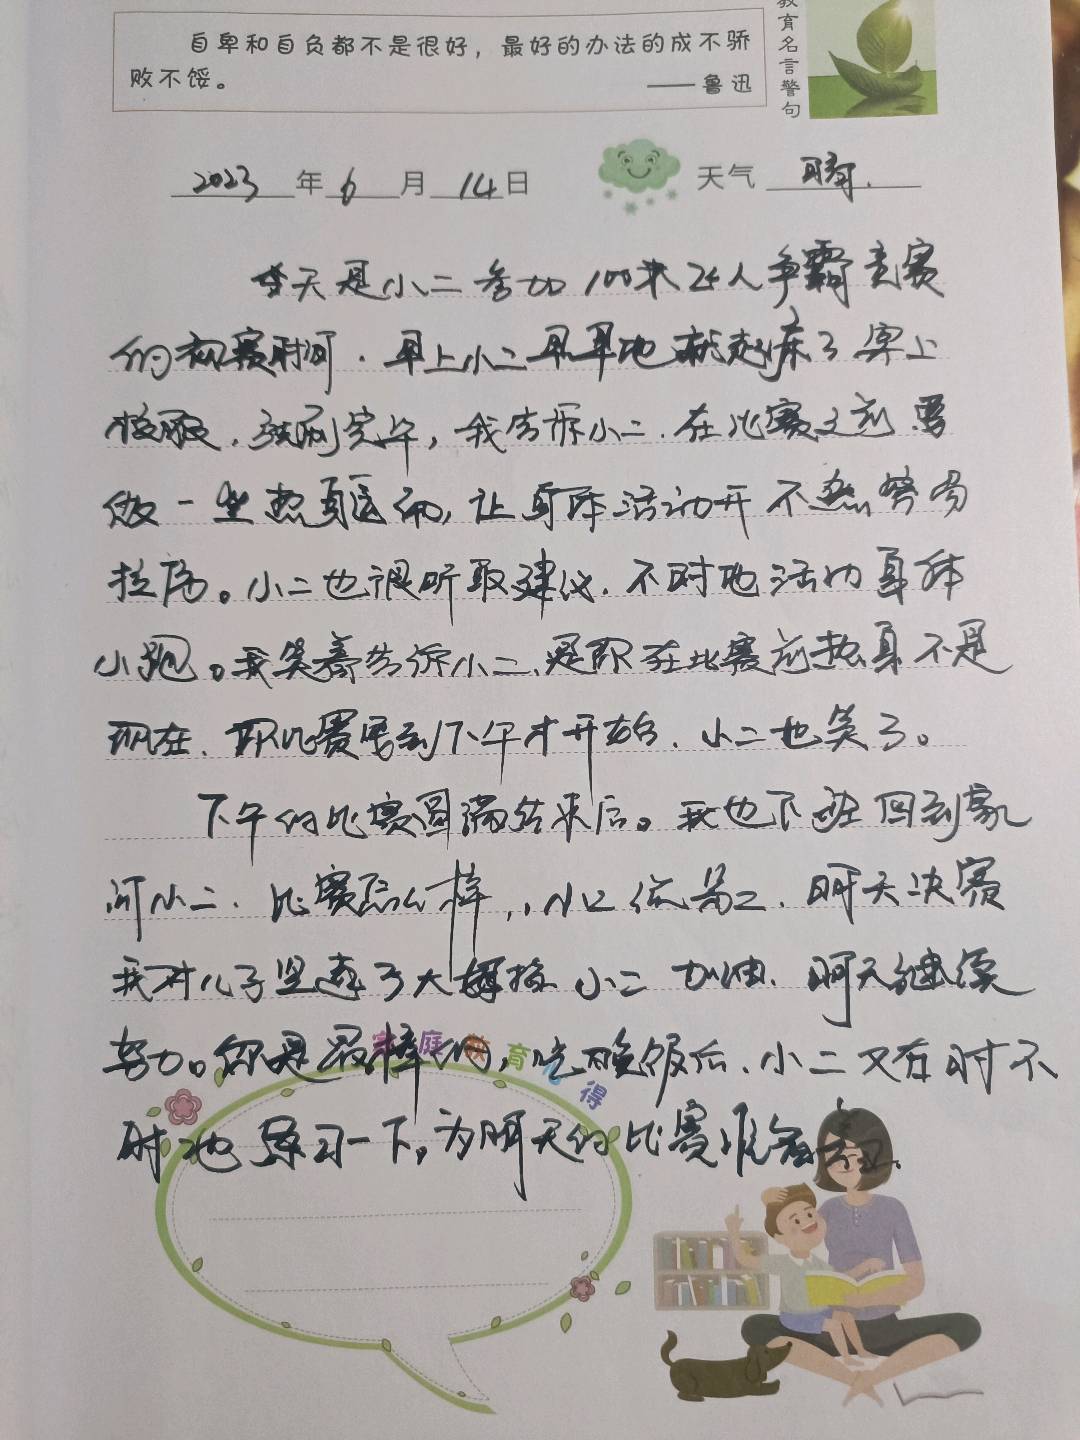 自卑和自负都不是很好，最好的办法的成不骄
败不馁。
——鲁迅
教育名言警句
2023年6月14日
天气 晴.
今天是小二参加100米24人争霸竞赛
的初赛时间.早上小二早早地就起床了穿上
校服.洗刷完毕,我告诉小二.在比赛之前要
做一些热身运动,让身体活动开不然容易
拉伤。小二也很听取建议.不时地活动身体
小跑。我笑着告诉小二,是即在比赛前热身不是
现在.即比赛要到下午才开始.小二也笑了。
下午的比赛圆满结束后。我也下班回到家
问小二.比赛怎么样,,小二 第二.明天决赛
我对儿子竖起了大拇指 小二 加油.明天继续
努力。你是最棒的,吃晚饭后.小二又在时不
时地练习一下,为明天的比赛准备着.
家庭教育心得